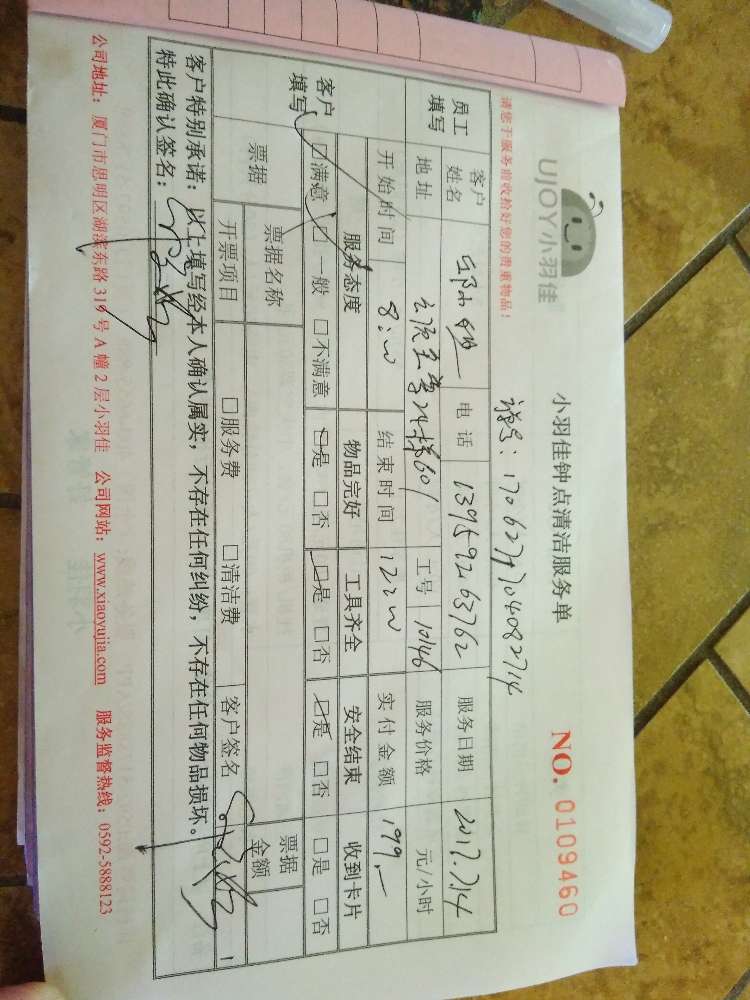 UJOY小羽佳
小羽佳钟点清洁服务单
NO. 0109460
请您于服务前收拾好您的贵重物品!
员工填写 客户姓名 电话 13959263762 服务日期 2017.7.14
地址 24梯601 工号 10146 服务价格 元/小时
开始时间 8:00 结束时间 12:00 实付金额 199.-
客户填写 服务态度 物品完好 工具齐全 安全结束 收到卡片
□满意 □一般 □不满意 □是 □否 □是 □否 □是 □否 □是 □否
票据 票据名称 票据金额
开票项目 □服务费 □清洁费 客户签名
客户特别承诺:以上填写经本人确认属实,不存在任何纠纷,不存在任何物品损坏。
特此确认签名:
公司地址:厦门市思明区湖滨东路319号A幢2层小羽佳 公司网站:www.xiaoyujia.com 服务监督热线:0592-5888123